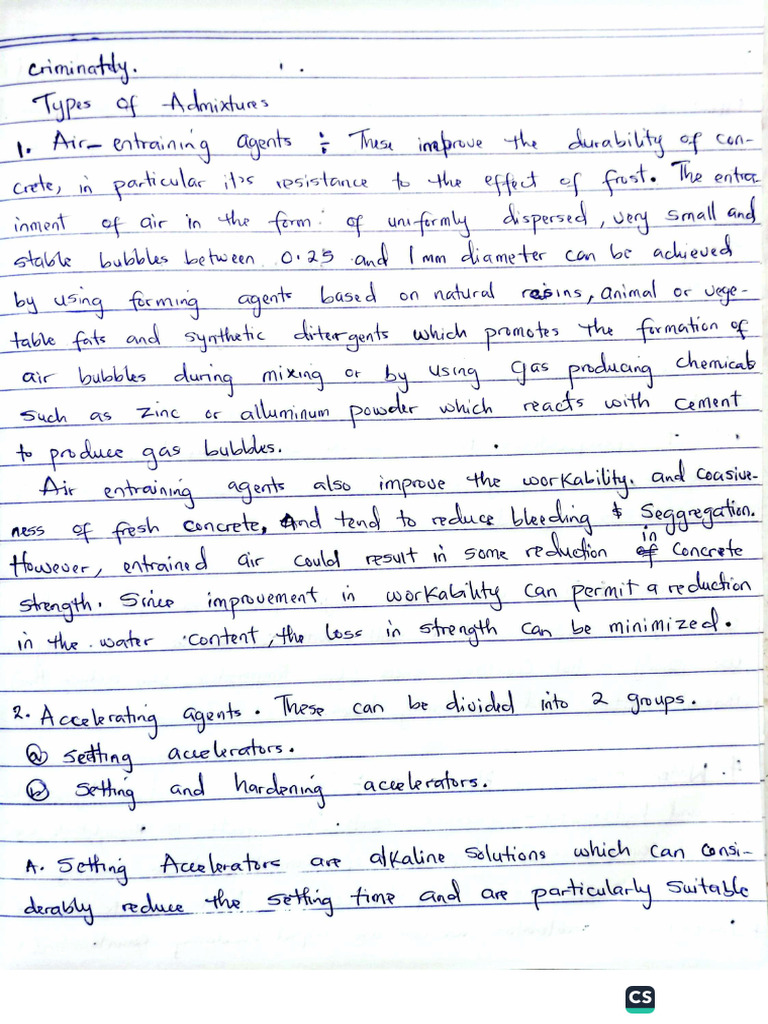 criminately.
Types of Admixtures
1. Air-entraining agents ÷ These improve the durability of con-
crete, in particular it's resistance to the effect of frost. The entra
inment of air in the form of uniformly dispersed, very small and
stable bubbles between 0.25 and 1mm diameter can be achieved
by using forming agents based on natural resins, animal or vege-
table fats and synthetic ditergents which promotes the formation of
air bubbles during mixing or by using gas producing chemicals
such as zinc or alluminum powder which reacts with cement
to produce gas bubbles.
Air entraining agents also improve the workability. and coasive-
ness of fresh concrete, And tend to reduce bleeding & Seggregation.
However, entrained air could result in some reduction in concrete
strength. Since improvement in workability can permit a reduction
in the water content, the loss in strength can be minimized.
2. Accelerating agents. These can be divided into 2 groups.
(a) setting accelerators.
(b) Setting and hardening accelerators.
A. Setting Accelerators are alkaline solutions which can consi-
derably reduce the setting time and are particularly suitable
CS